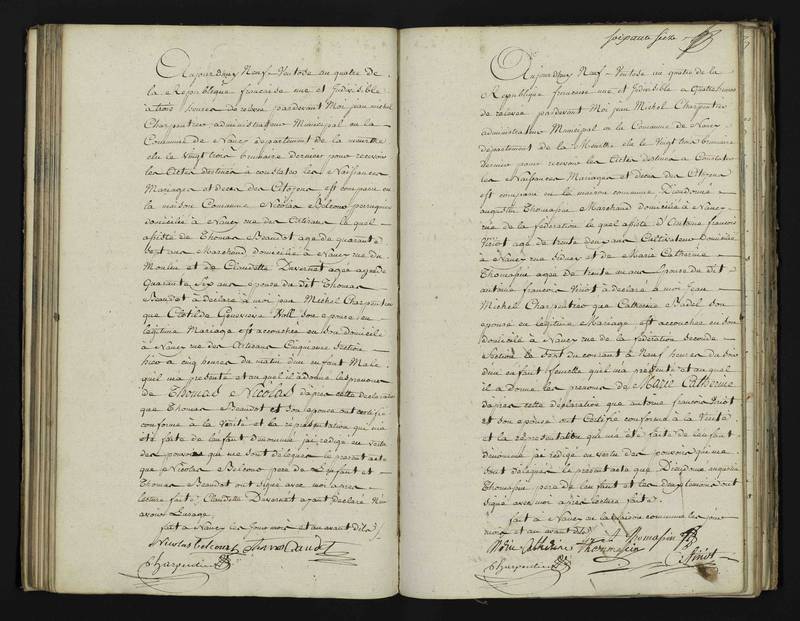 Aujourdhuy Neuf Ventose an quatre de
la Republique francaise une et Indivisible
a trois heures de relevée pardevant Moi jean michel
Charpentier administrateur Municipal en la
Commune de Nancy departement de la meurthe
elu le Vingt trois brumaire dernier pour recevoir
les Actes destinés a constater les Naissances
Mariages et deces des Citoyens, est comparu en
la maison Commune Nicolas perruquier
domicilié a Nancy rue des Artisans le quel
assisté de Thomas Beaudot agé de quarante
sept ans Marchand domicilié a Nancy rue du
Moulin et de Claudette Davernet agée
Quarante Six ans epouse du dit Thomas
Beaudot a déclaré a moi jean Michel Charpentier
que Clotilde Genevieve Noll son epouse en
legitime Mariage est accouchée en son Domicile
a Nancy rue des Artisans Cinquieme Section
hier a cinq heures du matin d'un enfant Male
quil ma presenté et au quel il a donné les prenoms
de Thomas Nicolas d'apres cette declaration
que Thomas Beaudot et son epouse ont certifié
conforme a la Vérité et la représentation qui m'a
été faite de l'enfant denommé jai redigé en vertu
des pouvoirs qui me sont délégués le present acte
que Nicolas pere de l'enfant et
Thomas Beaudot ont signé avec moi apres
lecture faite, Claudette Davernet ayant declaré N'en
avoir l'usage
fait a Nancy les jour mois et an avant dits
Nicolas
Charpentier
soixante seize
Aujourdhuy Neuf Ventose an quatre de la
Republique francaise une et Indivisible a Quatre heures
de relevee pardevant Moi jean Michel Charpentier
administrateur Municipal en la Commune de Nancy
departement de la Meurthe elu le Vingt trois brumaire
dernier pour recevoir les Actes destinés a Constater
les Naissances Mariages et Deces des Citoyens
est comparu en la maison commune Dieudonné
augustin Thomassin Marchand domicilié a Nancy
rue de la féderation le quel assisté d'Antoine francois
agé de trente deux ans Cultivateur Domicilié
a Nancy rue Sidney et de Marie Catherine
Thomassin agée de trente un ans epouse du dit
antoine francois a déclaré a moi Jean
Michel Charpentier que Catherine Badel son
epouse en legitime Mariage est accouchée en son
domicile a Nancy rue de la féderation seconde
Section le Sept du courant a Neuf heures du Soir
d'un enfant femelle quil ma presenté et au quel
il a Donné les prenoms de Marie Catherine
d'après cette déclaration que antoine francois
et son epouse ont Certifié conforme a la Vérité
et la representation qui m'a été faite de l'enfant
denommé jai redigé en vertu des pouvoirs qui me
sont délégués le present acte que Dieudonné augustin
Thomassin pere de l'enfant et les declarans ont
Signé avec moi après lecture faite
fait a Nancy en la Maison commune les jour
mois et an avant dits
Marie Catherine Thommassin
Thomassin
Charpentier